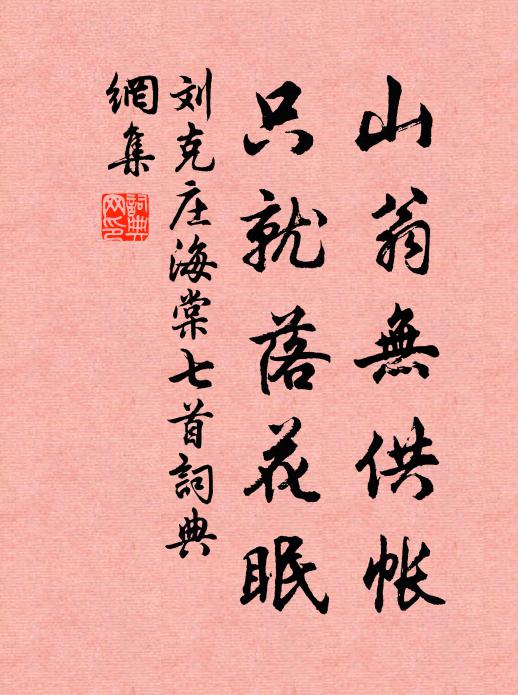 山翁無供帐
只就落花眠
刘克庄海棠七首詞典
網集
詞典网印